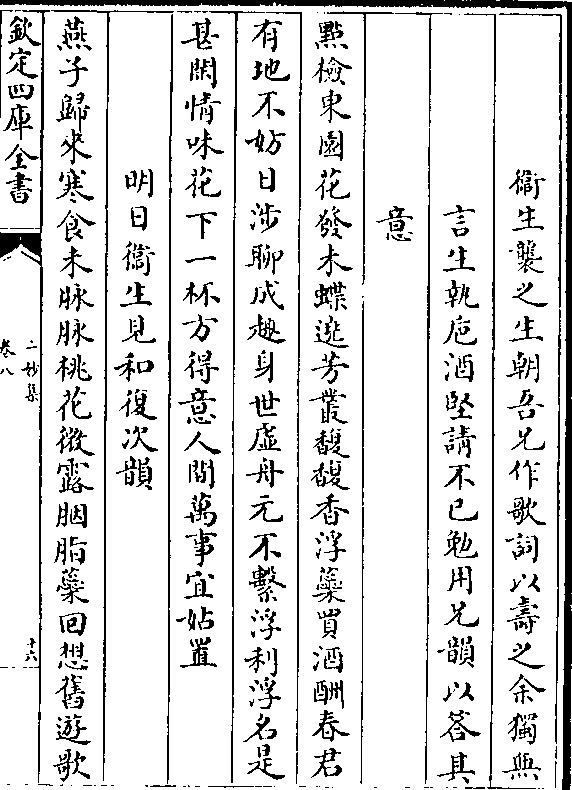 衞生襲之生朝吾兄作歌詞以壽之余獨無
言生執巵酒堅請不已勉用兄韻以答其
意
點檢東園花發未蝶遶芳叢馥馥香浮蘂買酒酬春君
有地不妨日涉聊成趣身世虛舟元不繫浮利浮名是
甚閑情味花下一杯方得意人間萬事宜姑置
明日衞生見和復次韻
燕子歸來寒食未脉脉桃花微露胭脂蘂回想舊遊歌
欽定四庫全書
二妙集
卷八
十六